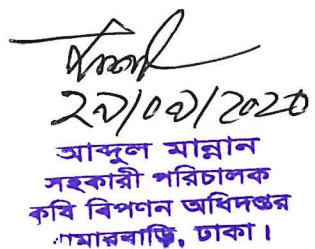 ২৯/০৯/২০২০
আব্দুল মান্নান
সহকারী পরিচালক
কৃষি বিপণন অধিদপ্তর
খামারবাড়ি, ঢাকা।